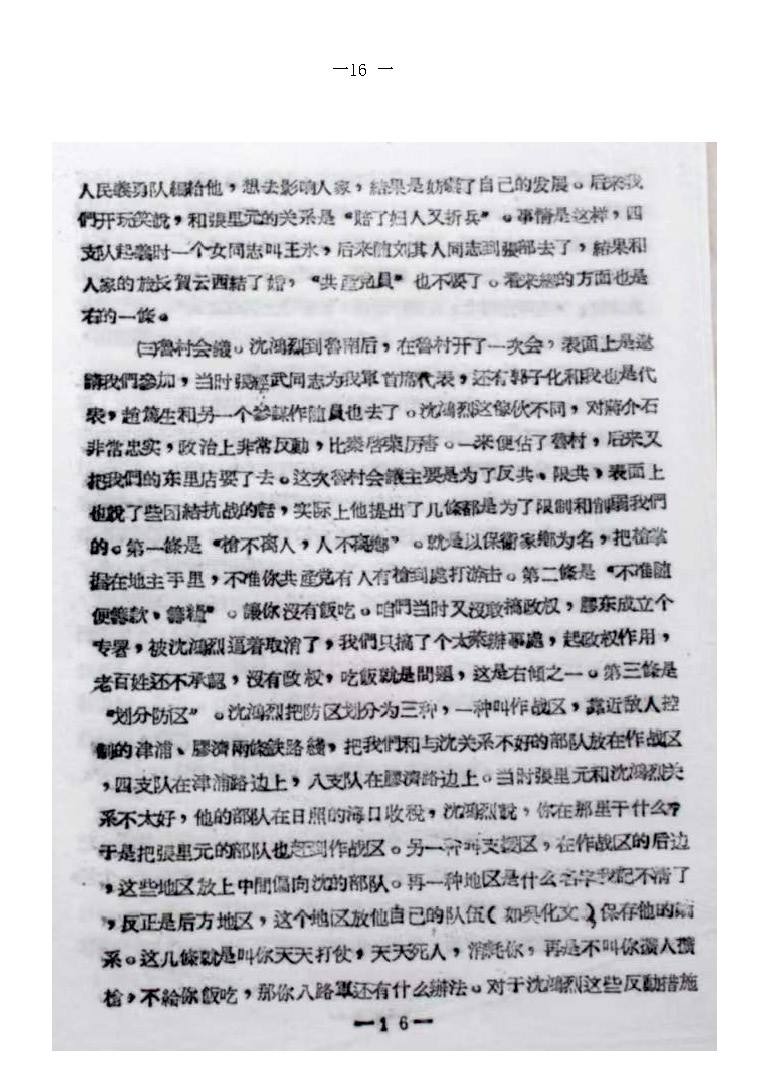 一16 一
人民義勇队編給他，想去影响人家，結果是妨碍了自己的发展。后来我
們开玩笑說，和張里元的关系是“賠了妇人又折兵”。事情是这样，四
支队起義时一个女同志叫王氷，后来随刘其人同志到張部去了，結果和
人家的旅长賀云西結了婚，“共產党員”也不要了。看来總的方面也是
右的一條。
㈡魯村会議。沈鴻烈到魯南后，在魯村开了一次会，表面上是邀
請我們参加，当时張經武同志为我軍首席代表，还有郭子化和我也是代
表，趙篤生和另一个参謀作随員也去了。沈鴻烈这傢伙不同，对蔣介石
非常忠实，政治上非常反動，比秦啓榮厉害。一来便佔了魯村，后来又
把我們的东里店要了去。这次魯村会議主要是为了反共、限共，表面上
也說了些团結抗战的話，实际上他提出了几條都是为了限制和削弱我們
的。第一條是“槍不离人，人不离鄉”。就是以保衛家鄉为名，把槍掌
握在地主手里，不准你共產党有人有槍到處打游击。第二條是“不准随
便籌款、籌糧”。讓你沒有飯吃。咱們当时又沒敢搞政权，膠东成立个
专署，被沈鴻烈逼着取消了，我們只搞了个太萊辦事處，起政权作用，
老百姓还不承認，沒有政权，吃飯就是問題，这是右傾之一。第三條是
“划分防区”。沈鴻烈把防区划分为三种，一种叫作战区，靠近敌人控
制的津浦、膠濟兩條鉄路綫，把我們和与沈关系不好的部队放在作战区
，四支队在津浦路边上，八支队在膠濟路边上。当时張里元和沈鴻烈关
系不太好，他的部队在日照的海口收稅，沈鴻烈說，你在那里干什么？
于是把張里元的部队也赶到作战区。另一种叫支援区，在作战区的后边
，这些地区放上中間偏向沈的部队。再一种地区是什么名字我記不清了
，反正是后方地区，这个地区放他自己的队伍（如吳化文）保存他的嫡
系。这几條就是叫你天天打仗，天天死人，消耗你，再是不叫你擴人擴
槍，不給你飯吃，那你八路軍还有什么辦法。对于沈鴻烈这些反動措施
一1 6一